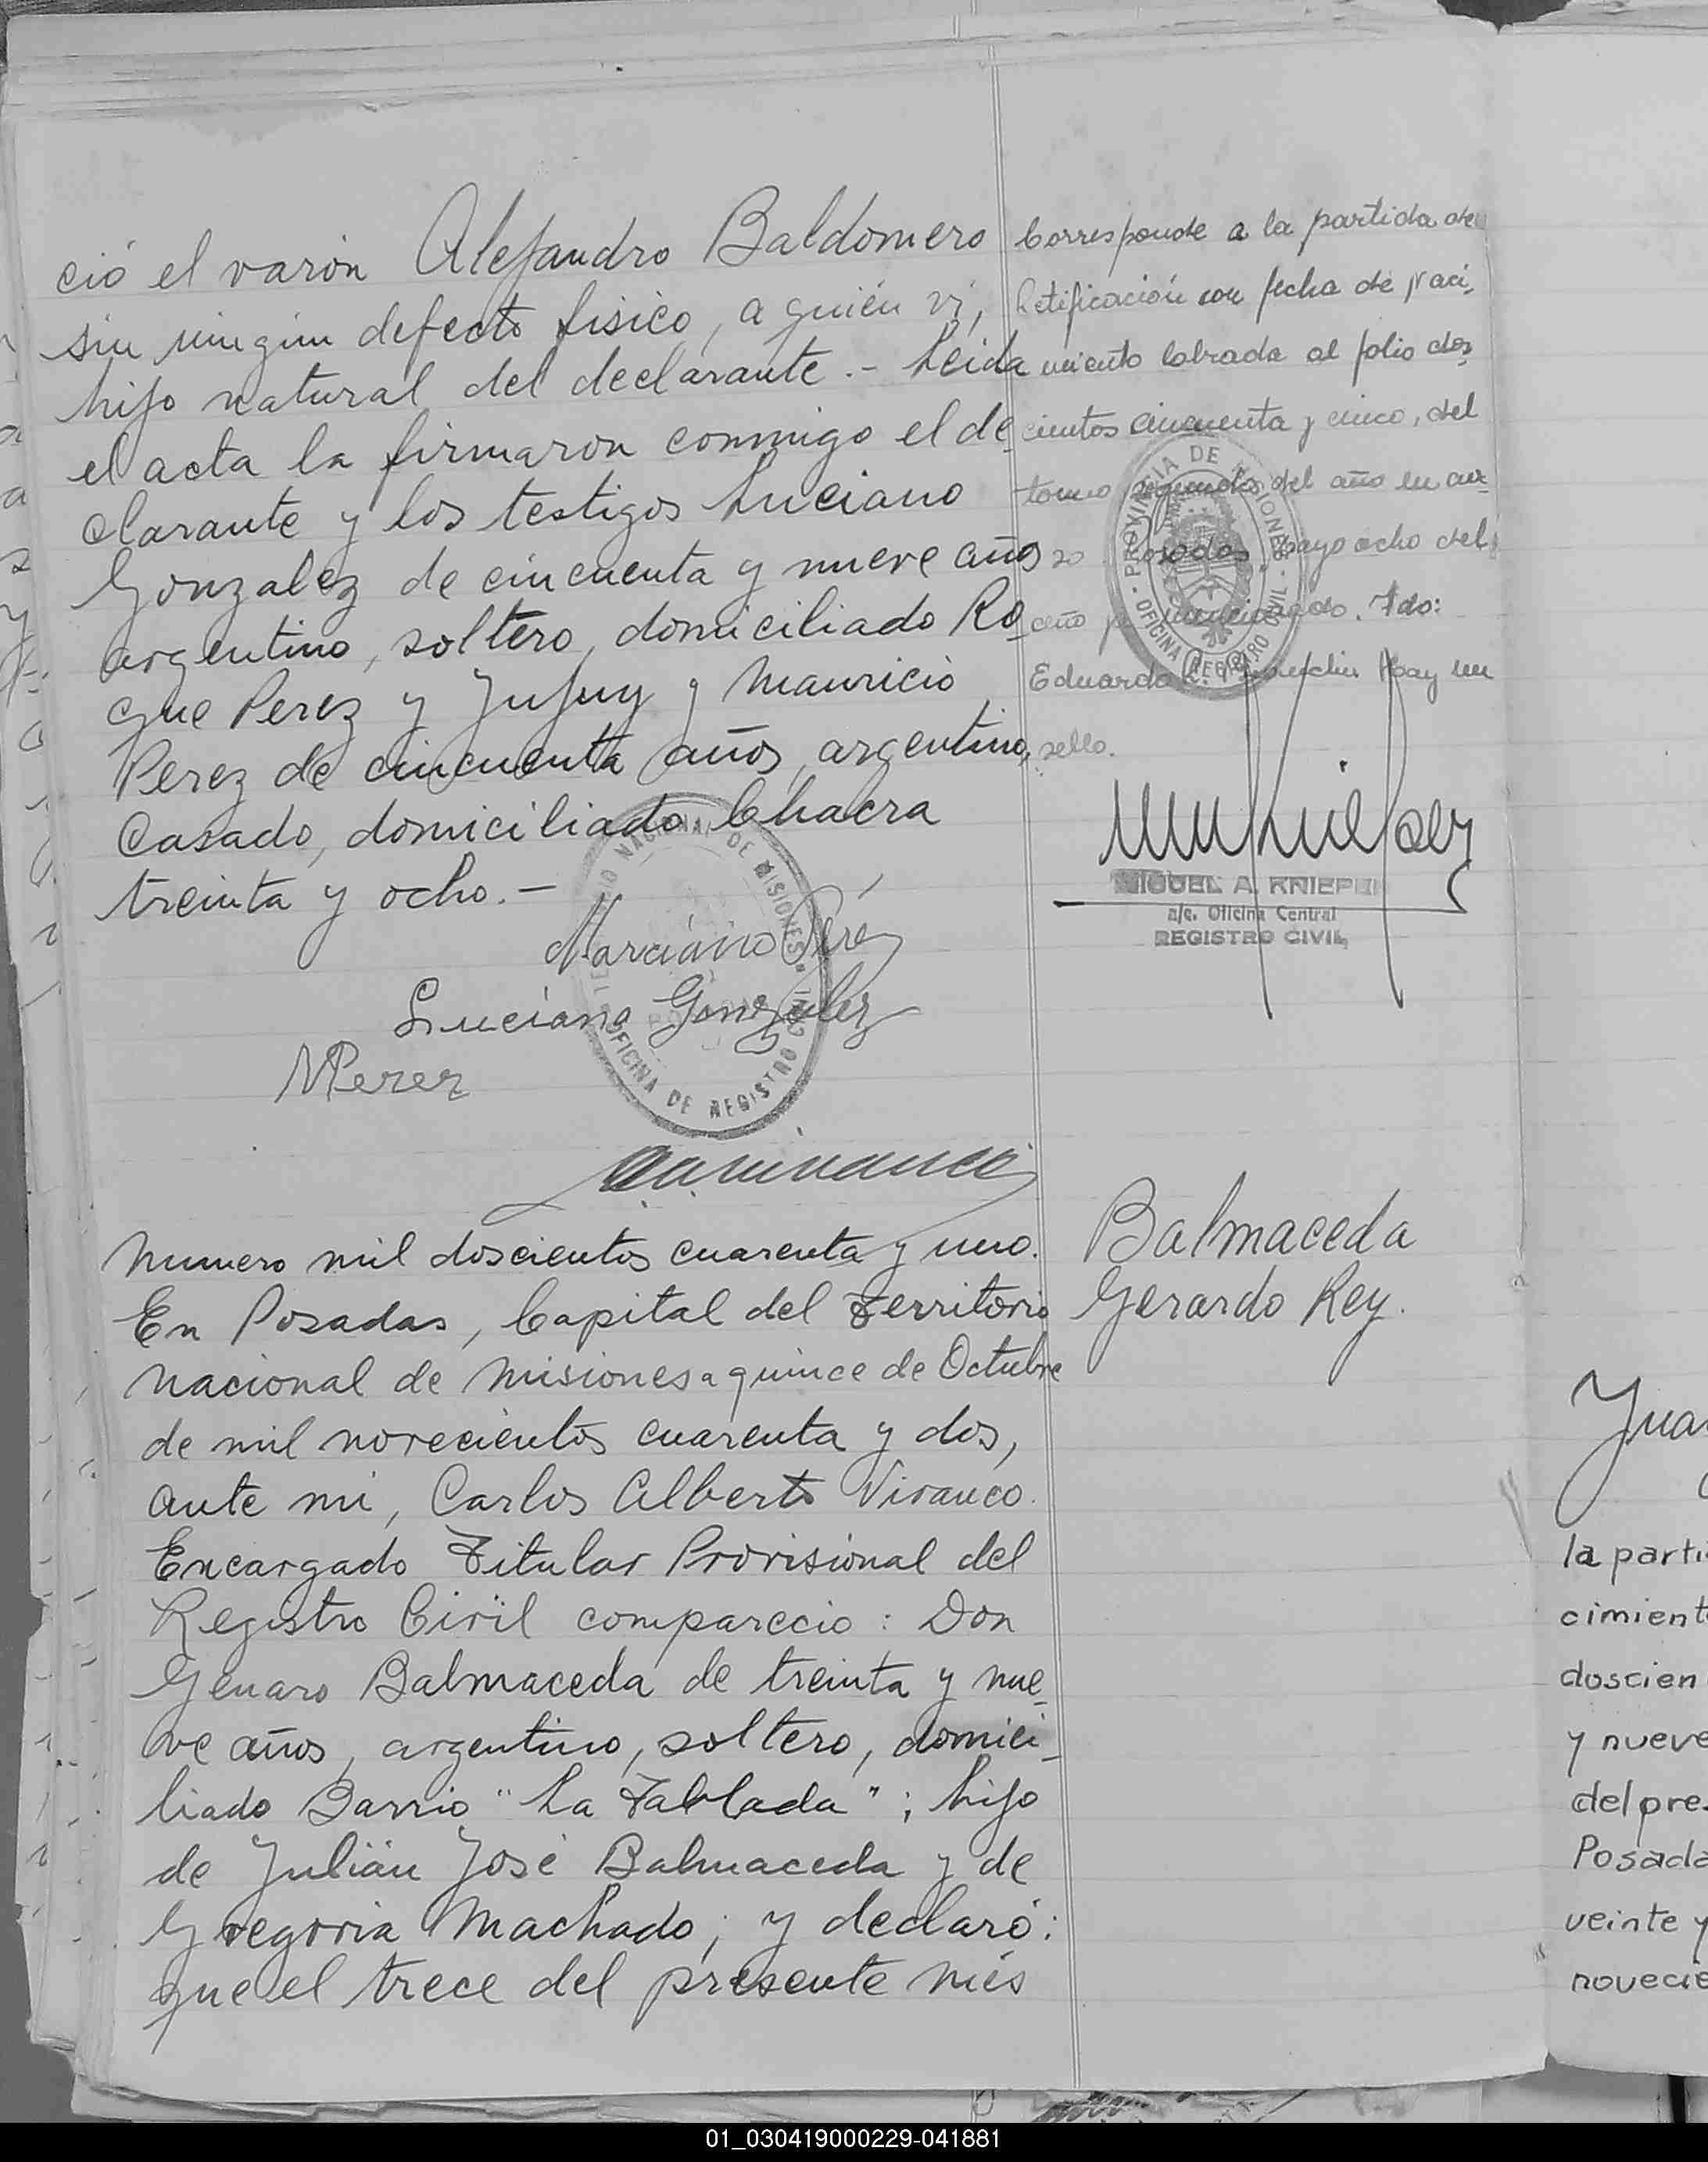 ció el varón Alejandro Baldomero
sin ningún defecto fisico, a quién vi,
hijo natural del declarante.- Leida
el acta la firmaron conmigo el de-
clarante y los testigos Luciano
Gonzalez de cincuenta y nueve años
argentino, soltero, domiciliado Ro-
que Perez y Jujuy y Mauricio
Perez de cincuenta años, argentino,
casado, domiciliado Chacra
treinta y ocho.-
Marciano Peréz
Luciano Gonzalez
MPerez
OFICINA DE REGISTRO CIVIL
NACIONAL DE MISIONES
Corresponde a la partida de
Retificación con fecha de naci-
miento labrada al folio dos-
cientos cincuenta y cinco, del
tomo segundo del año en cur-
so Posadas, mayo ocho del
año ya mencionado. Fdo:
Eduardo Hay un
sello.
PROVINCIA DE MISIONES
OFICINA REGISTRO CIVIL
MIGUEL A. KNIEPER
a/c. Oficina Central
REGISTRO CIVIL
Numero mil doscientos cuarenta y uno.
En Posadas, Capital del Territorio
Nacional de Misiones a quince de Octubre
de mil novecientos cuarenta y dos,
ante mi, Carlos Alberto Vivanco
Encargado Titular Provisional del
Registro Civil compareció: Don
Genaro Balmaceda de treinta y nue-
ve años, argentino, soltero, domici-
liado Barrio "La Tablada"; hijo
de Julián José Balmaceda y de
Gregoria Machado; y declaró:
que el trece del presente més
Balmaceda
Gerardo Rey.
Jua
la parti
cimient
doscien
y nueve
del pre
Posada
veinte y
novecie
01_030419000229-041881